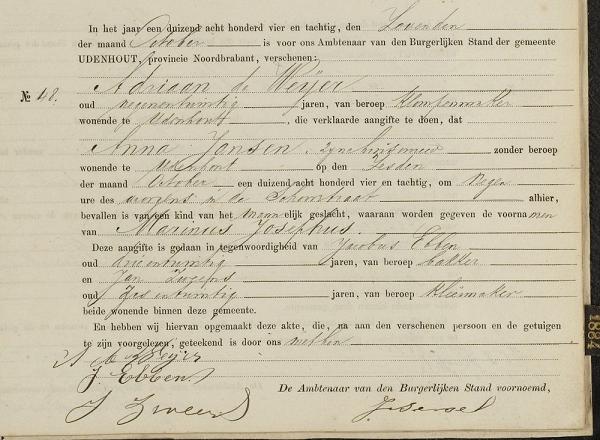 In het jaar een duizend acht honderd vier en tachtig, den Zevenden
der maand October is voor ons Ambtenaar van den Burgerlijken Stand der gemeente
UDENHOUT, provincie Noordbrabant, verschenen:
Adriaan de Weijer
№ 48.
oud negenentwintig jaren, van beroep klompenmaker
wonende te Udenhout, die verklaarde aangifte te doen, dat
Anna Jansen, zijne huisvrouw zonder beroep
wonende te Udenhout op den Zesden
der maand October een duizend acht honderd vier en tachtig, om Negen
ure des morgens in de alhier,
bevallen is van een kind van het mannelijk geslacht, waaraan worden gegeven de voornamen
van Marinus Josephus.
Deze aangifte is gedaan in tegenwoordigheid van Jacobus Ebben
oud drieentwintig jaren, van beroep bakker
en Jan
oud zesentwintig jaren, van beroep kleermaker
beide wonende binnen deze gemeente.
En hebben wij hiervan opgemaakt deze akte, die, na aan den verschenen persoon en de getuigen
te zijn voorgelezen, geteekend is door ons met hen
A de Weijer
J. Ebben
De Ambtenaar van den Burgerlijken Stand voornoemd,
1884